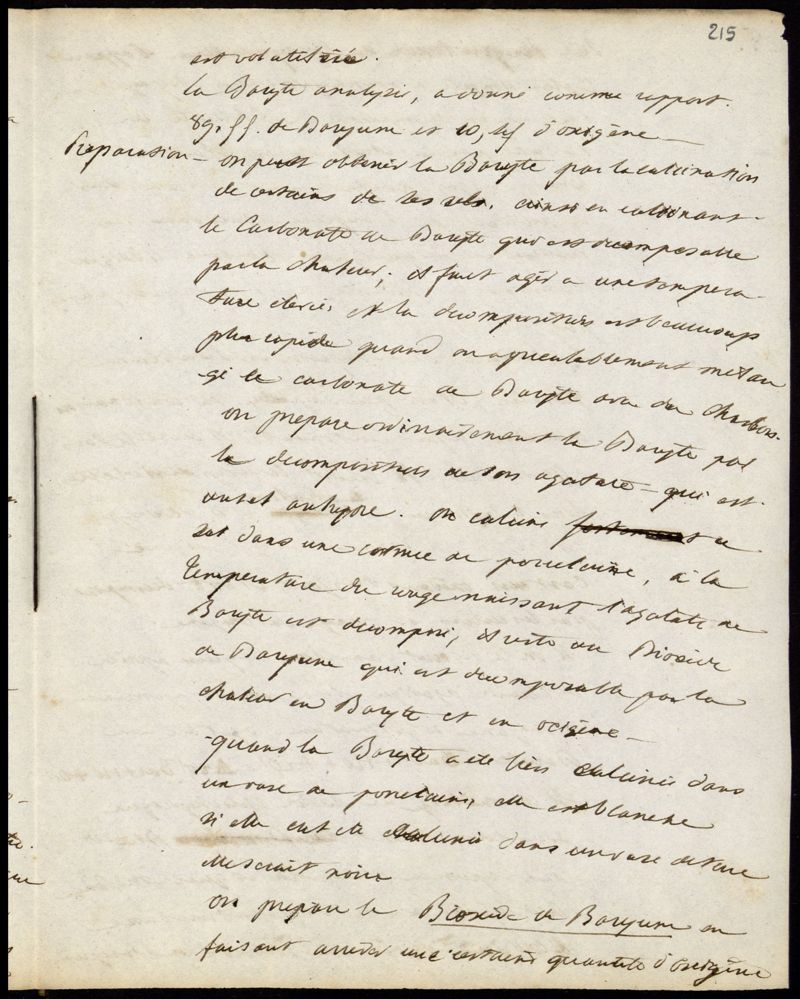 215
est volatilisée.
la Baryte analysée, a donné comme rapport.
89,55. de Baryum et 10,45 d'oxigène —
Preparation — on peut obtenir la Baryte par la calcination
de certains de ses sels. ainsi en calcinant
le Carbonate de Baryte qui est decomposable
par la chaleur; il faut agir a une tempera-
ture elevée, et la decomposition est beaucoup
plus rapide quand on a prealablement melan
gé le carbonate de Baryte avec du charbon.
on prepare ordinairement la Baryte par
la decomposition de son azotate — qui est
on calcine fortement ce
sel dans une cornue de porcelaine, à la
temperature du rouge naissant l'azotate de
Baryte est decomposé, il reste un Bioxide
de Baryum qui est decomposable par la
chaleur en Baryte et en oxigène —
quand la Baryte a été bien calcinée dans
un vase de porcelaine, elle est blanche
si elle eut été calcinée dans un vase de terre
elle serait noire
on prepare le Bioxide de Baryum en
faisant arriver une certaine quantité d'oxigène